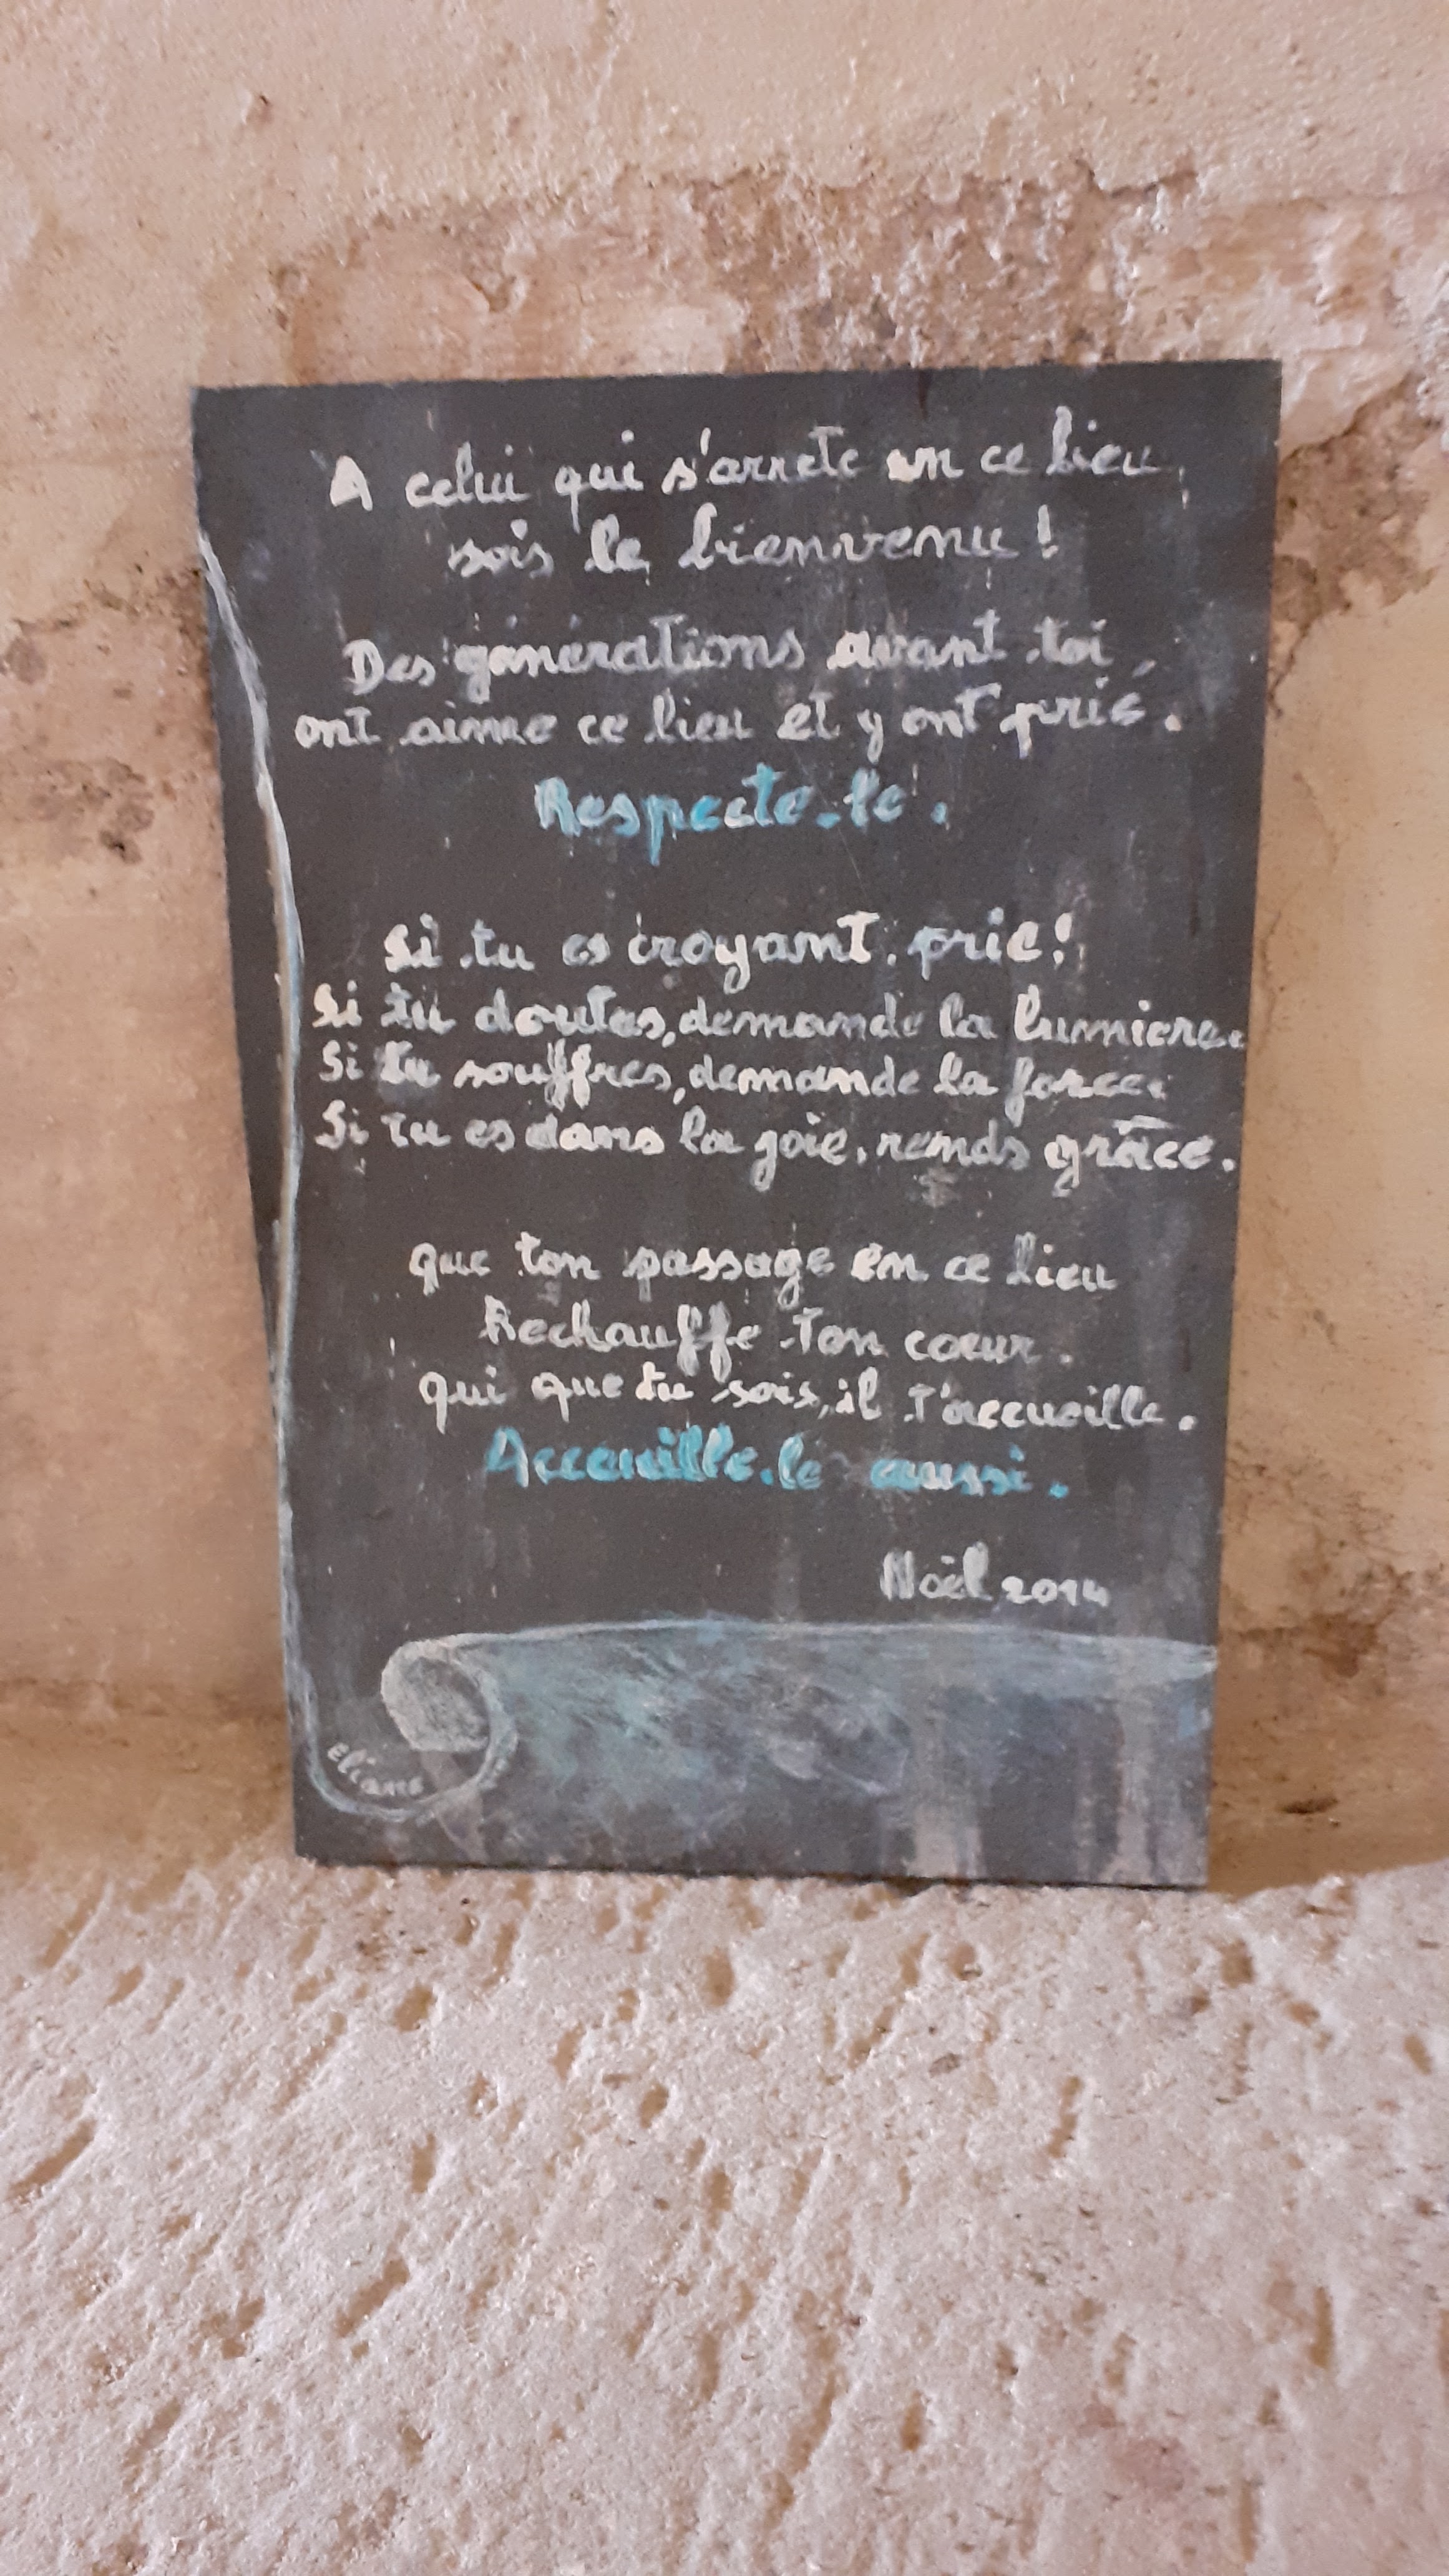 A celui qui s'arrete en ce lieu,
sois le bienvenu !
Des générations avant toi,
ont aimé ce lieu et y ont prié.
Respecte-le.
Si tu es croyant, prie !
Si tu doutes, demande la lumiere.
Si tu souffres, demande la force.
Si tu es dans la joie, rends grâce.
que ton passage en ce lieu
Rechauffe ton cœur.
qui que tu sois, il t'accueille.
Accueille-le aussi.
Noël 2014
Eliane